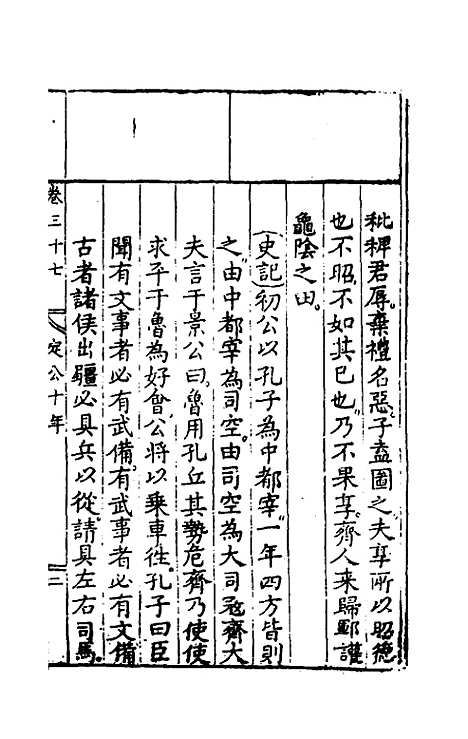 秕稗君辱棄禮名惡子盍圖之夫享所以昭德
也不昭不如其已也乃不果享齊人来歸鄆讙
龜陰之田
史記初公以孔子為中都宰一年四方皆則
之由中都宰為司空由司空為大司寇齊大
夫言于景公曰魯用孔丘其勢危齊乃使使
求平于魯為好會公将以乗車徃孔子曰臣
聞有文事者必有武備有武事者必有文備
古者諸侯出疆必具兵以從請具左右司馬
卷三十七 定公十年 二